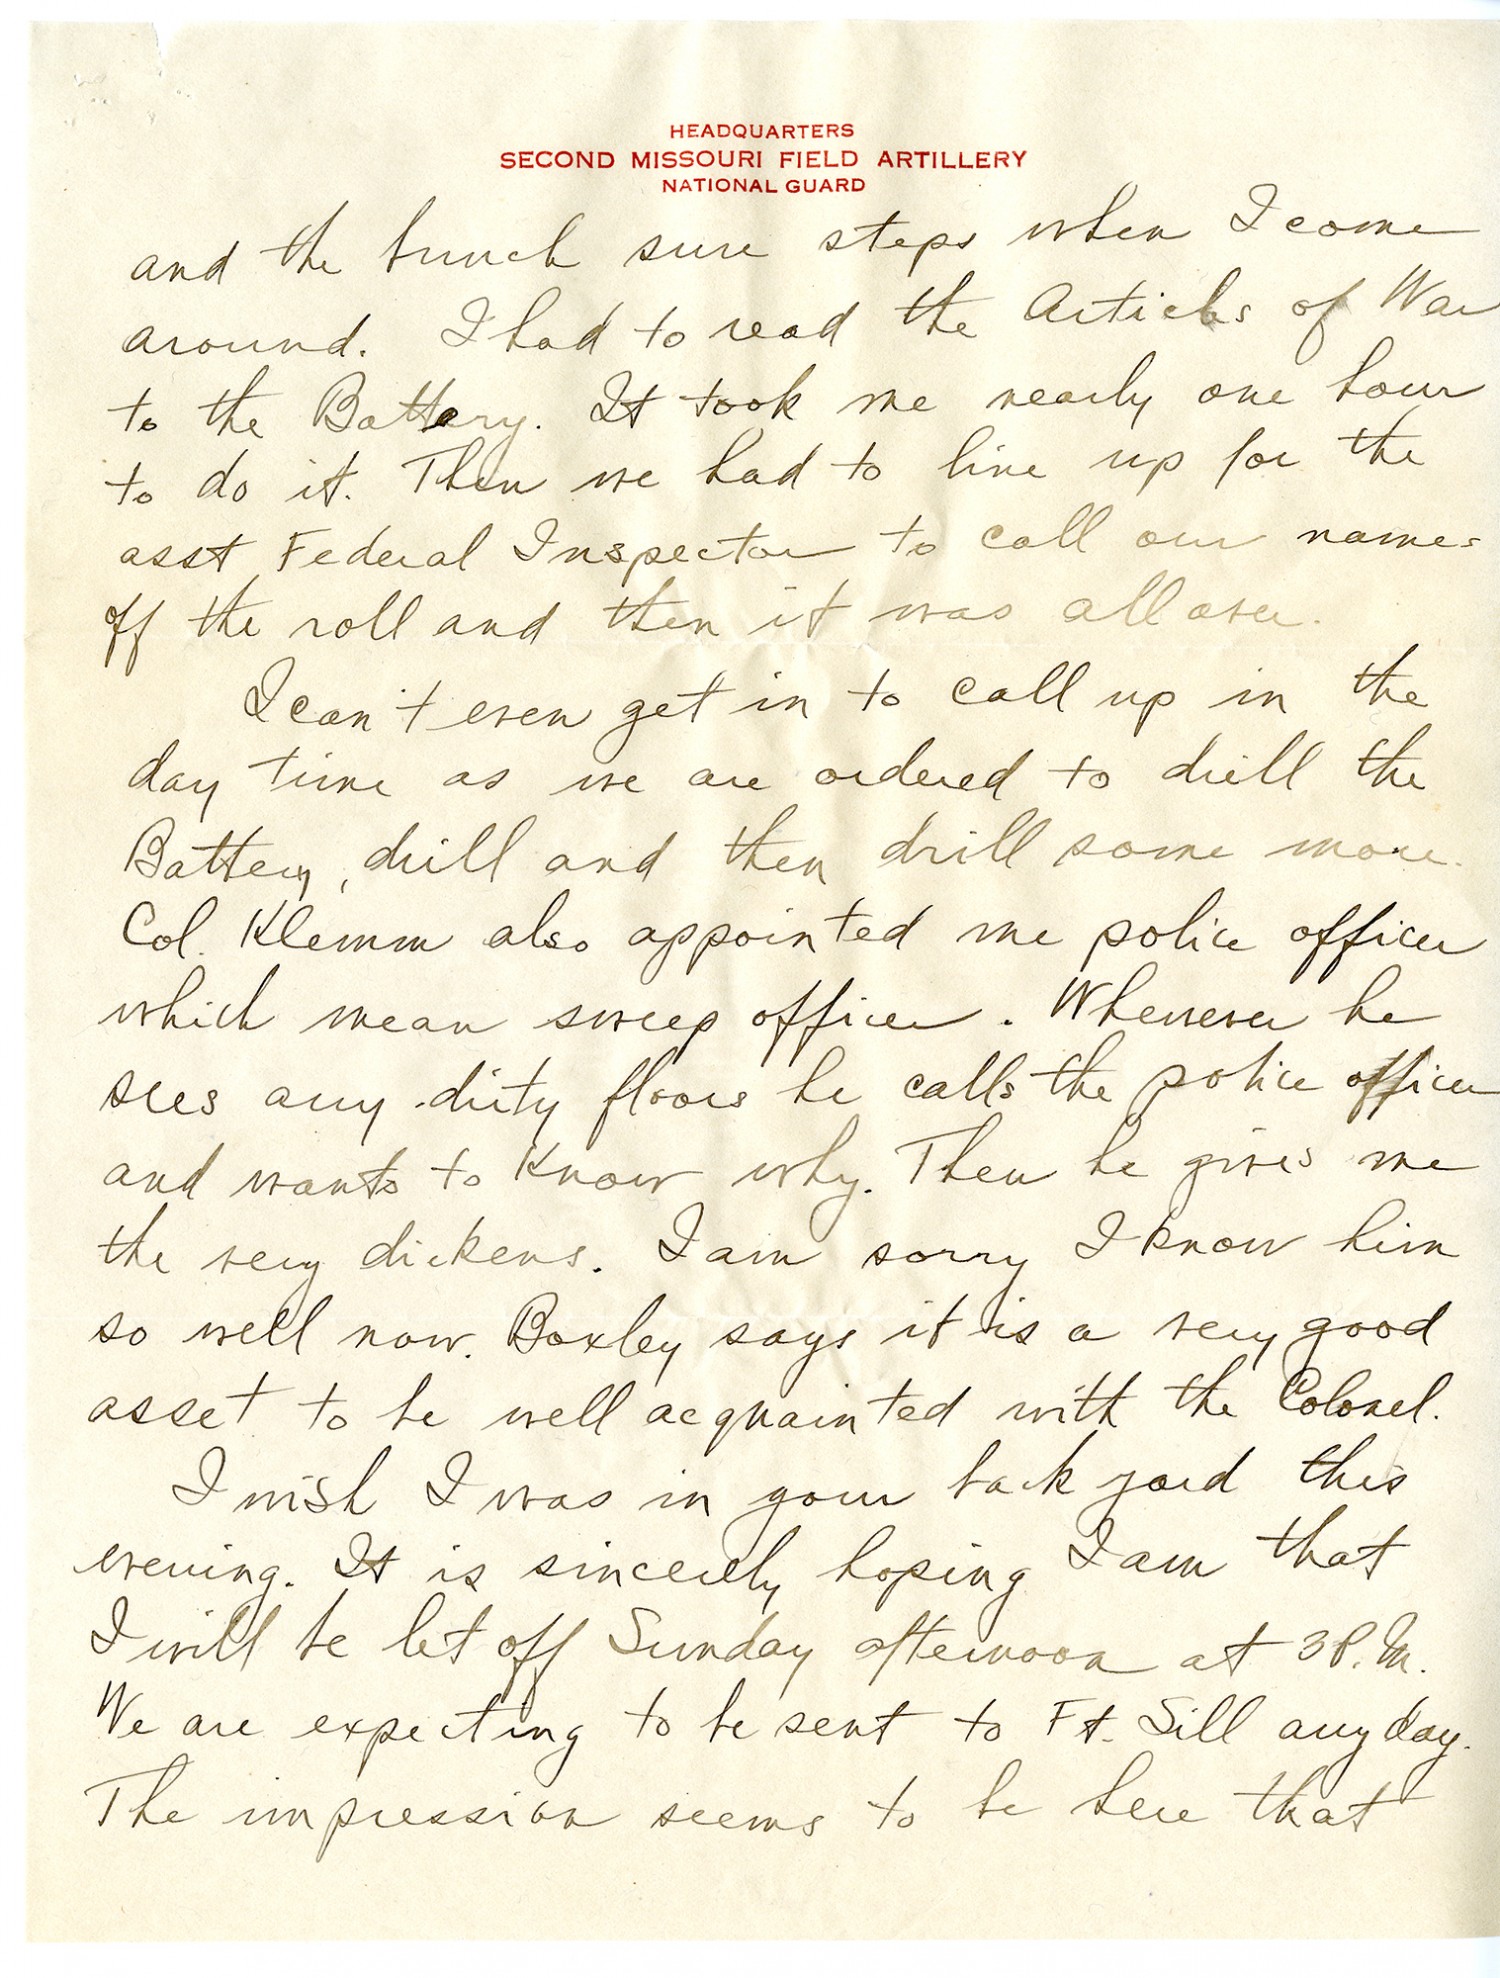 HEADQUARTERS
SECOND MISSOURI FIELD ARTILLERY
NATIONAL GUARD
and the bunch sure steps when I come
around. I had to read the Articles of War
to the Battery. It took me nearly one hour
to do it. Then we had to line up for the
asst Federal Inspector to call our names
off the roll and then it was all over.
I can't even get in to call up in the
day time as we are ordered to drill the
Battery, drill and then drill some more.
Col. Klemm also appointed me police officer
which mean sweep officer. Whenever he
sees any dirty floors he calls the police officer
and wants to know why. Then he gives me
the very dickens. I am sorry I know him
so well now. Boxley says it is a very good
asset to be well acquainted with the Colonel.
I wish I was in your back yard this
evening. It is sincerely hoping I am that
I will be let off Sunday afternoon at 3 P.M.
We are expecting to be sent to Ft. Sill any day.
The impression seems to be here that